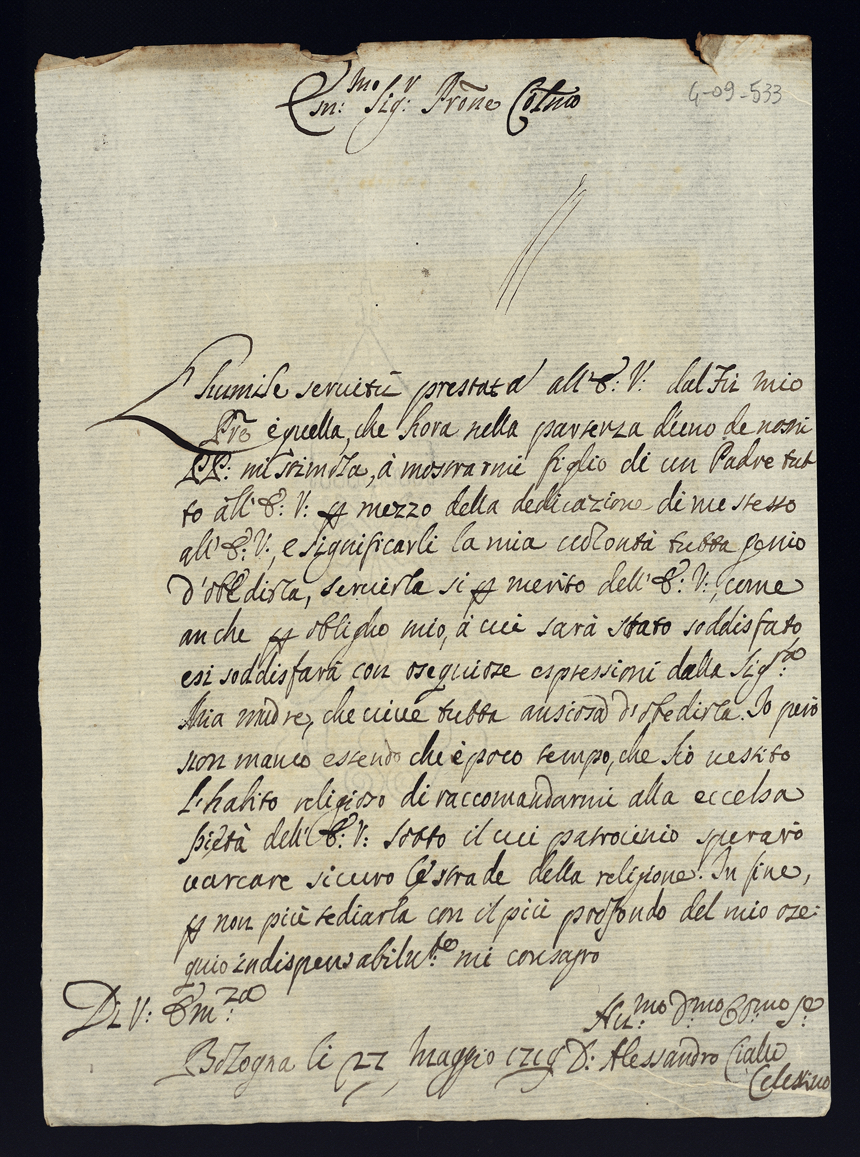 Em:mo Sigr: Prone Colmo
4-09-533
L'humile servitù prestata all'E: V: dal Fù mio
Pre è quella, che hora nella partenza d'uno de nostri
PP: mi stimola, à mostrarmi figlio di un Padre tut
to all'E: V: p mezzo della dedicazione di me stesso
all'E: V:, e significarli la mia volontà tutta genio
d'obedirla, servirla sì p merito dell'E: V:, come
anche p obligho mio, à cui sarà stato soddisfato
e si soddisfarà con osequiose espressioni dalla Sig:ra
Mia madre, che vive tutta ansiosa d'obedirla. Io però
non manco essendo che è poco tempo, che hò vestito
l'habito religioso di raccomandarmi alla eccelsa
pietà dell'E: V: sotto il cui patrocinio sperarò
varcare sicuro le strade della religione. In fine,
p non più tediarla con il più profondo del mio ose:
quio indispensabilm:te mi consagro
Di V: Em:za
Hu:mo D:mo Ob:mo Se
Bologna li 22 Maggio 1719 D: Alessandro
Celestino